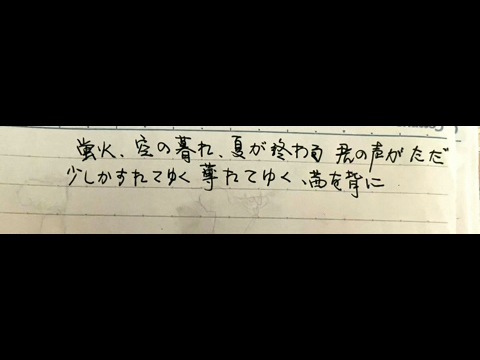 蛍火、空の暮れ、夏が終わる 君の声がただ
少しかすれてゆく 薄れてゆく、茜を背に